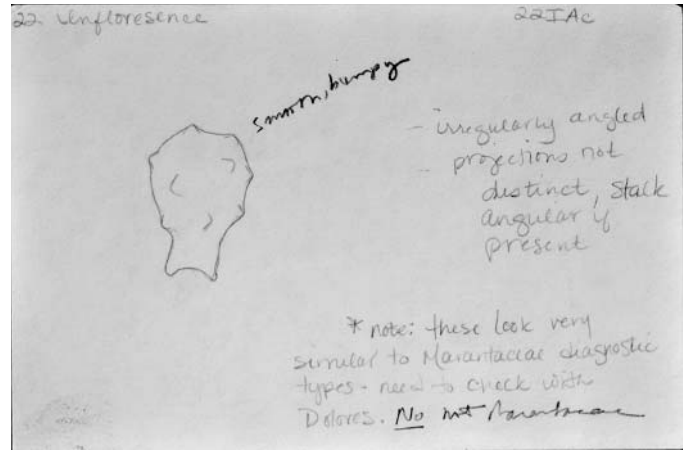 22. Infloresence
22IAc
smooth, bumpy
- irregularly angled
projections not
distinct, stalk
angular if
present
* note: these look very
similar to Marantaceae diagnostic
types - need to check with
Dolores. No not Marantaceae